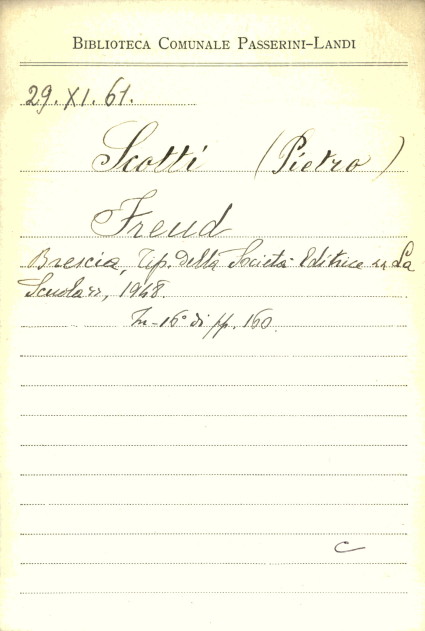 BIBLIOTECA COMUNALE PASSERINI-LANDI
29. XI. 61.
Scotti (Pietro)
Freud
Brescia, Tip. della Società Editrice "La
Scuola", 1948.
In-16° di pp. 160.
C